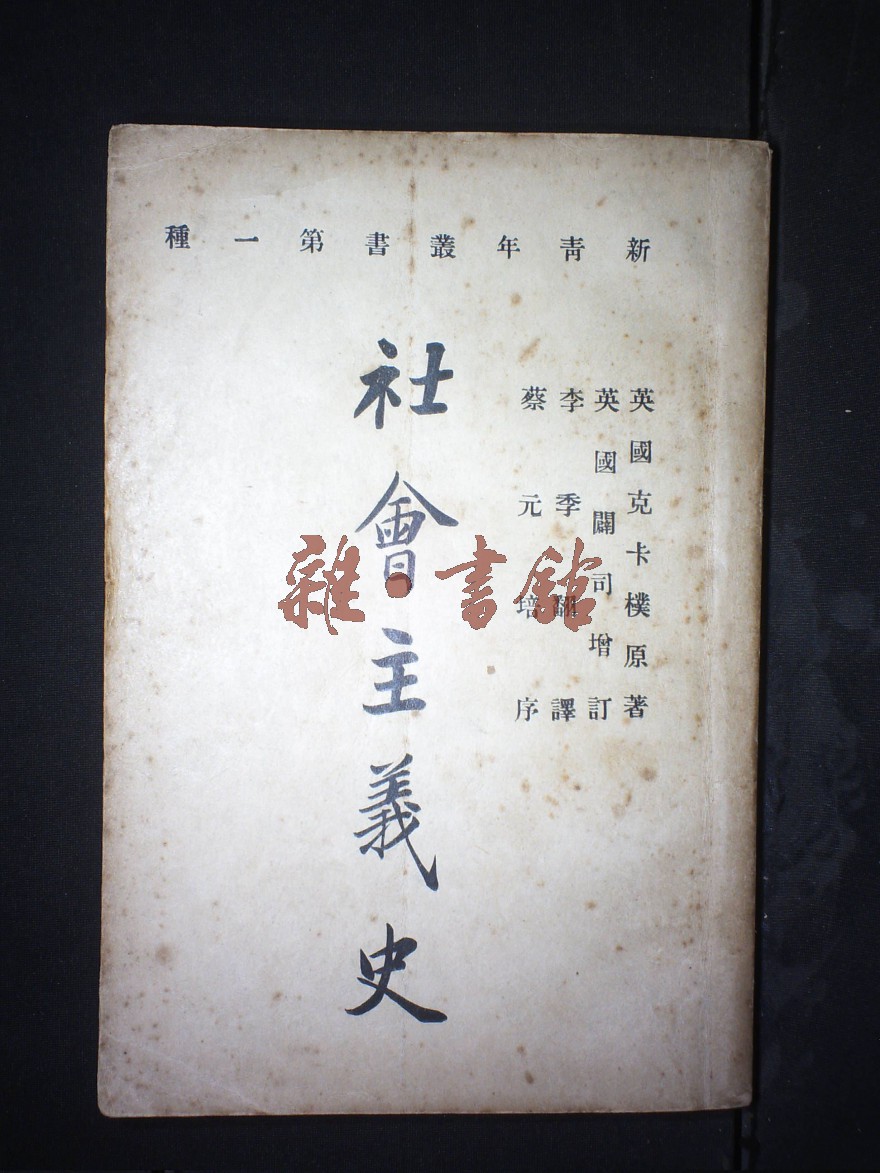 新青年叢書第一種
英國克卡樸原著
英國闢司增訂
李季翻譯
蔡元培序
社會主義史
雜·書館